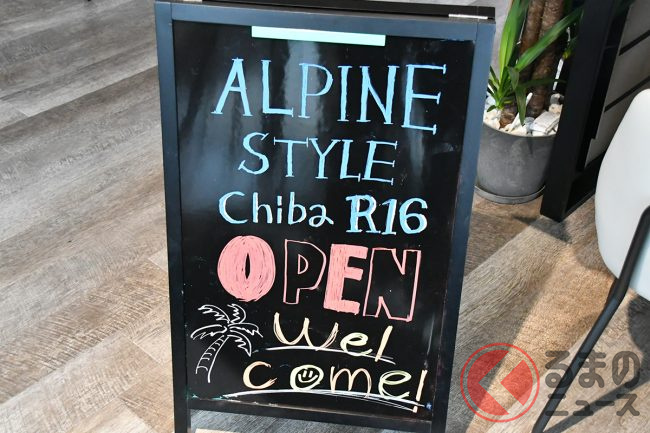 ALPINE
STYLE
Chiba R16
OPEN
Wel
come!
くるまの
ニュース